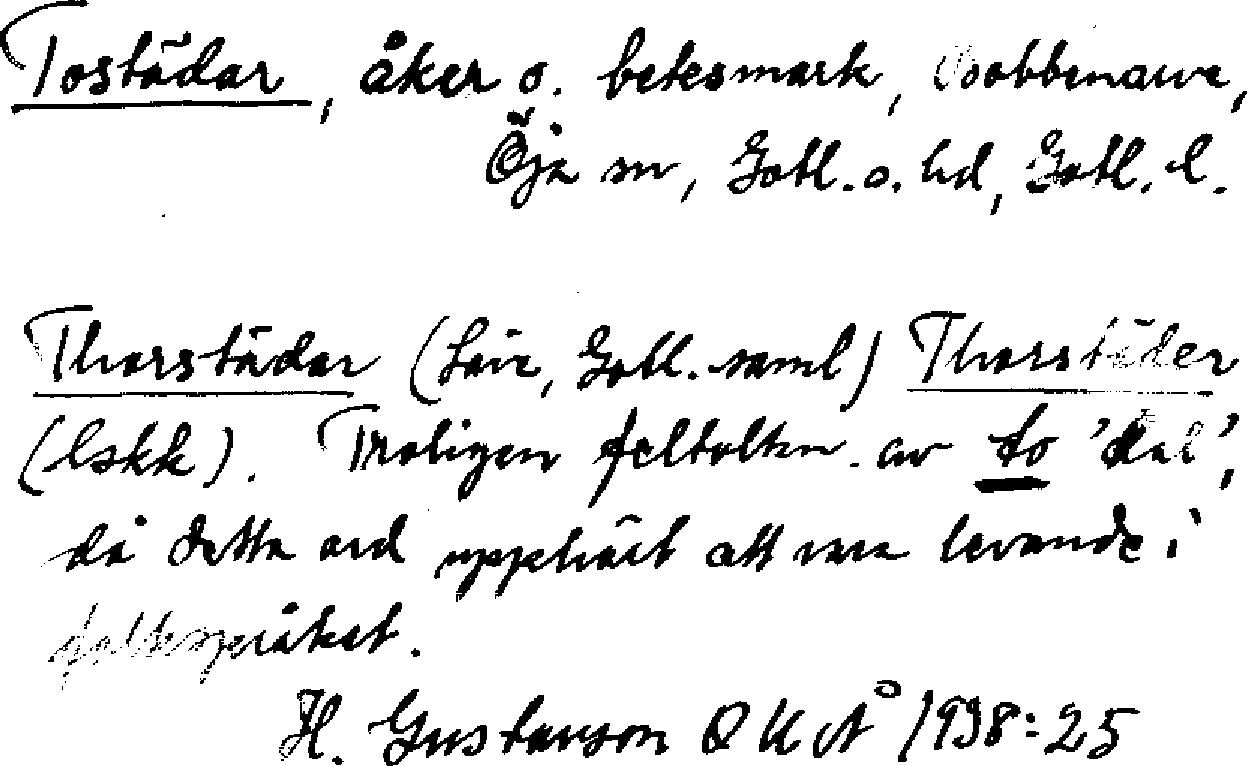 Tostädar, åker o. betesmark, Bobbenarve,
Öja sn, Gotl. s. hd, Gotl. l.
Thorstädar (Säve, Gotl. saml) Thorstäder
(lskk). Troligen feltolkn. av to 'del',
då detta ord upphört att vara levande i
folkspråket.
H. Gustavson OKÅ 1938:25